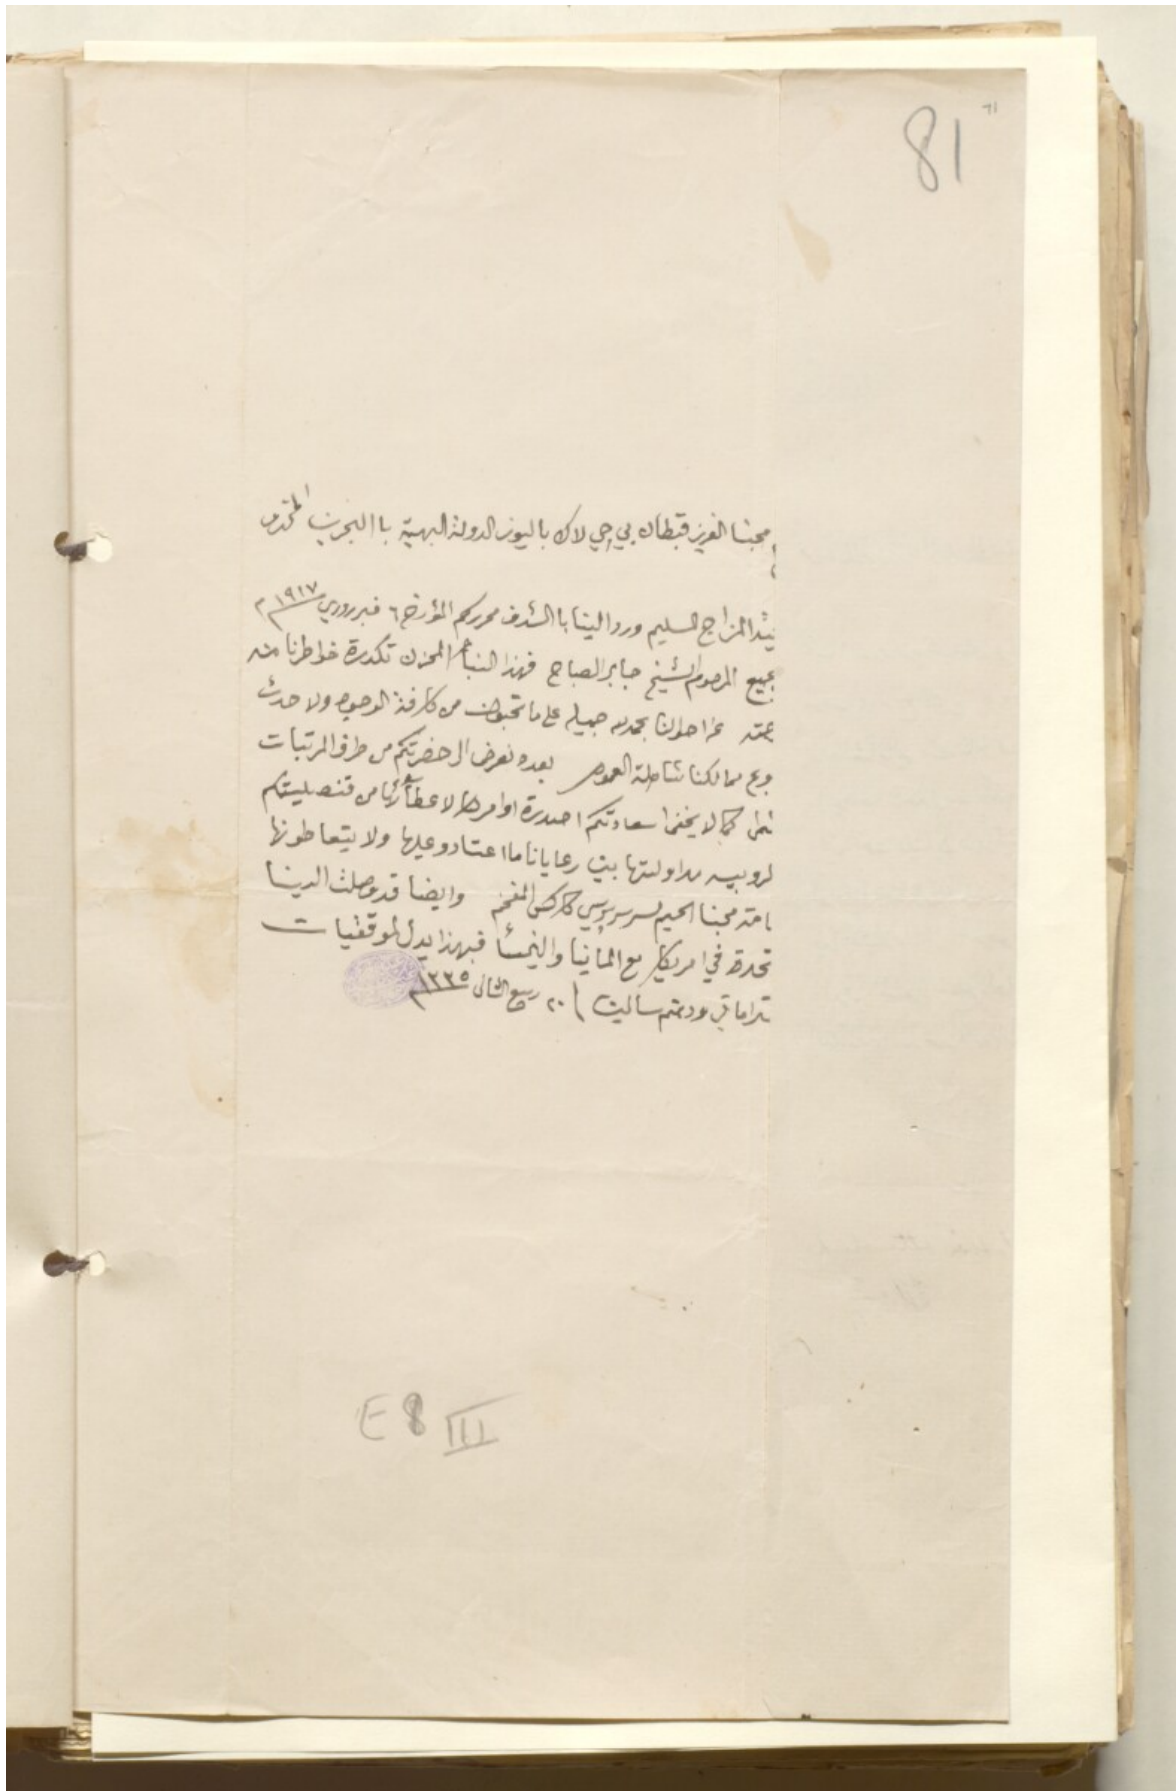 81
محبنا العزيز قبطان بي جي لاك باليوز الدولة البهية با البحرين المحترم
المزاج السليم ورد الينا با الشرف محرركم المؤرخ ٦ فبروري ١٩١٧ م
المرحوم الشيخ جابر الصباح فهذا النبأ المحزن تكدرة خواطرنا منه
احوالنا بحمده جميله على ما تحبون من كافة الوجوه ولا حدث
ممالكنا شاملة العموم بعده نعرض ال حضرتكم من طرف المرتبات
كما لا يخفى سعادتكم اصدرة اوامرها لاعطائها من قنصليتكم
لروبيه مداولتها بين رعايانا ما اعتادو عليها ولا يتعاطونها
محبنا الحيم سر برسي كاكس المفخم وايضا قد وصلت الدينا
تحدة في امريكا مع المانيا والنمسا فبهذا يدل لموقفيات
ودمتم سالين ٢٠ ربيع الثاني ١٣٣٥
E 8 III